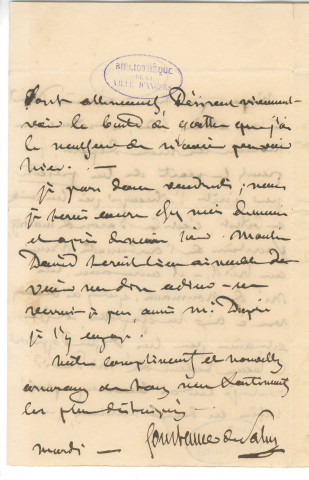 BIBLIOTHÈQUE
DE LA
VILLE D'ANGERS
sont allemands Désirent vivement
voir le buste de Goethe que j'ai
le malheur de n'avoir pu voir
hier. —
je pars donc vendredi, mais
je serai encore chez moi demain
et après demain
David serait bien aimable de
venir me dire adieu — se
je l'y engage.
Mille compliments et nouvelle
assurance de tous mes sentiments
les plus distingués —
mardi — Constance de Salm